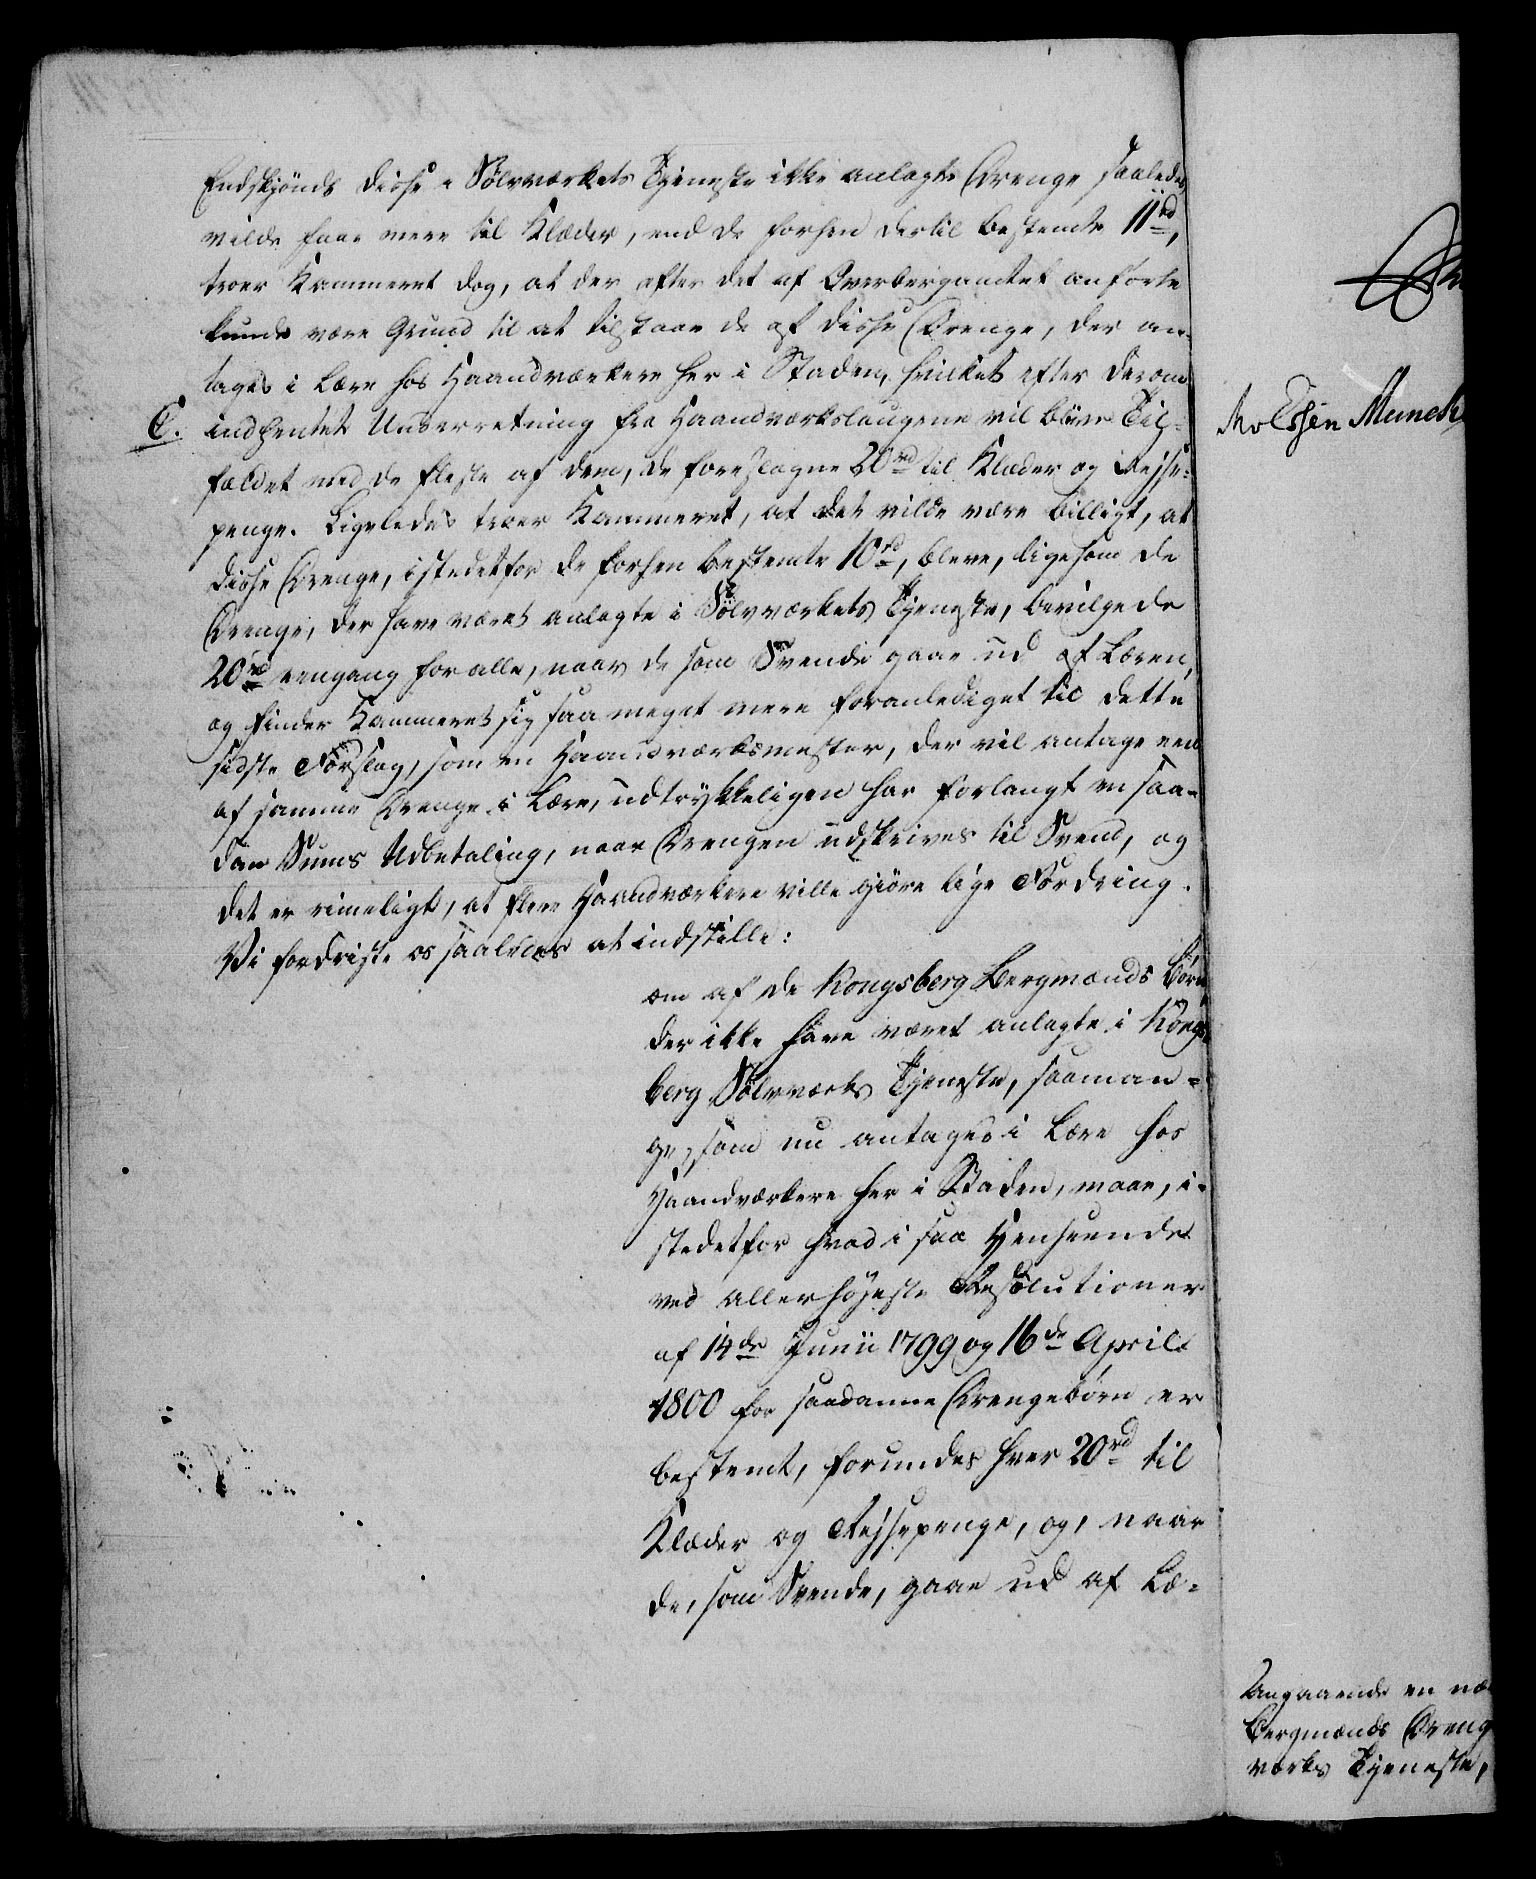 Endskjönds disse i Sølvværkets Tjeneste ikke anlagte Drenge saaledes
vilde faae mere til Klæder, end de forhen dertil bestemte 11rd,
troer Kammeret dog, at der efter det af Overbergamtet anførte
kunde være Grund til at tilstaae de af disse Drenge, der an-
tages i Lære hos Haandværkere her i Staden, hvilket efter derom
C. indhentet Underretning fra Haandværkslaugene vil blive Til-
fældet med de fleste af dem, de foreslagne 20rd til Klæder og Rejse-
penge. Ligeledes troer Kammeret, at det vilde være billigt, at
disse Drenge, istedetfor de forhen bestemte 10rd, bleve, ligesom de
Drenge, der have været anlagte i Sølvværkets Tjeneste, bevilgede
20rd eengang for alle, naar de som Svende gaae ud af Læren,
og finder Kammeret sig saa meget mere foranlediget til dette
sidste Forslag, som en Haandværksmester, der vil antage een
af samme Drenge i Lære, udtrykkeligen har forlangt en saa-
dan Sums Udbetaling, naar Drengen udskrives til Svend, og
det er rimeligt, at flere Haandværkere ville giöre lige Fordring.
Vi fordriste os saaledes at indstille:
om af de Kongsberg Bergmands Börn
der ikke have været anlagte i Kongs-
berg Sølvværks Tjeneste, saaman-
ge, som nu antages i Lære hos
Haandværkere her i Staden, maae, i-
stedetfor hvad i saa Henseende
ved allerhöjeste Resolutioner
af 14de Junii 1799 og 16de April
1800 for saadanne Drengebörn er
bestemt, forundes hver 20rd til
Klæder og Rejsepenge, og, naar
de, som Svende, gaae ud af Læ-
Essen Munch
Angaaende en
Bergmands Dreng
værks Tjeneste,